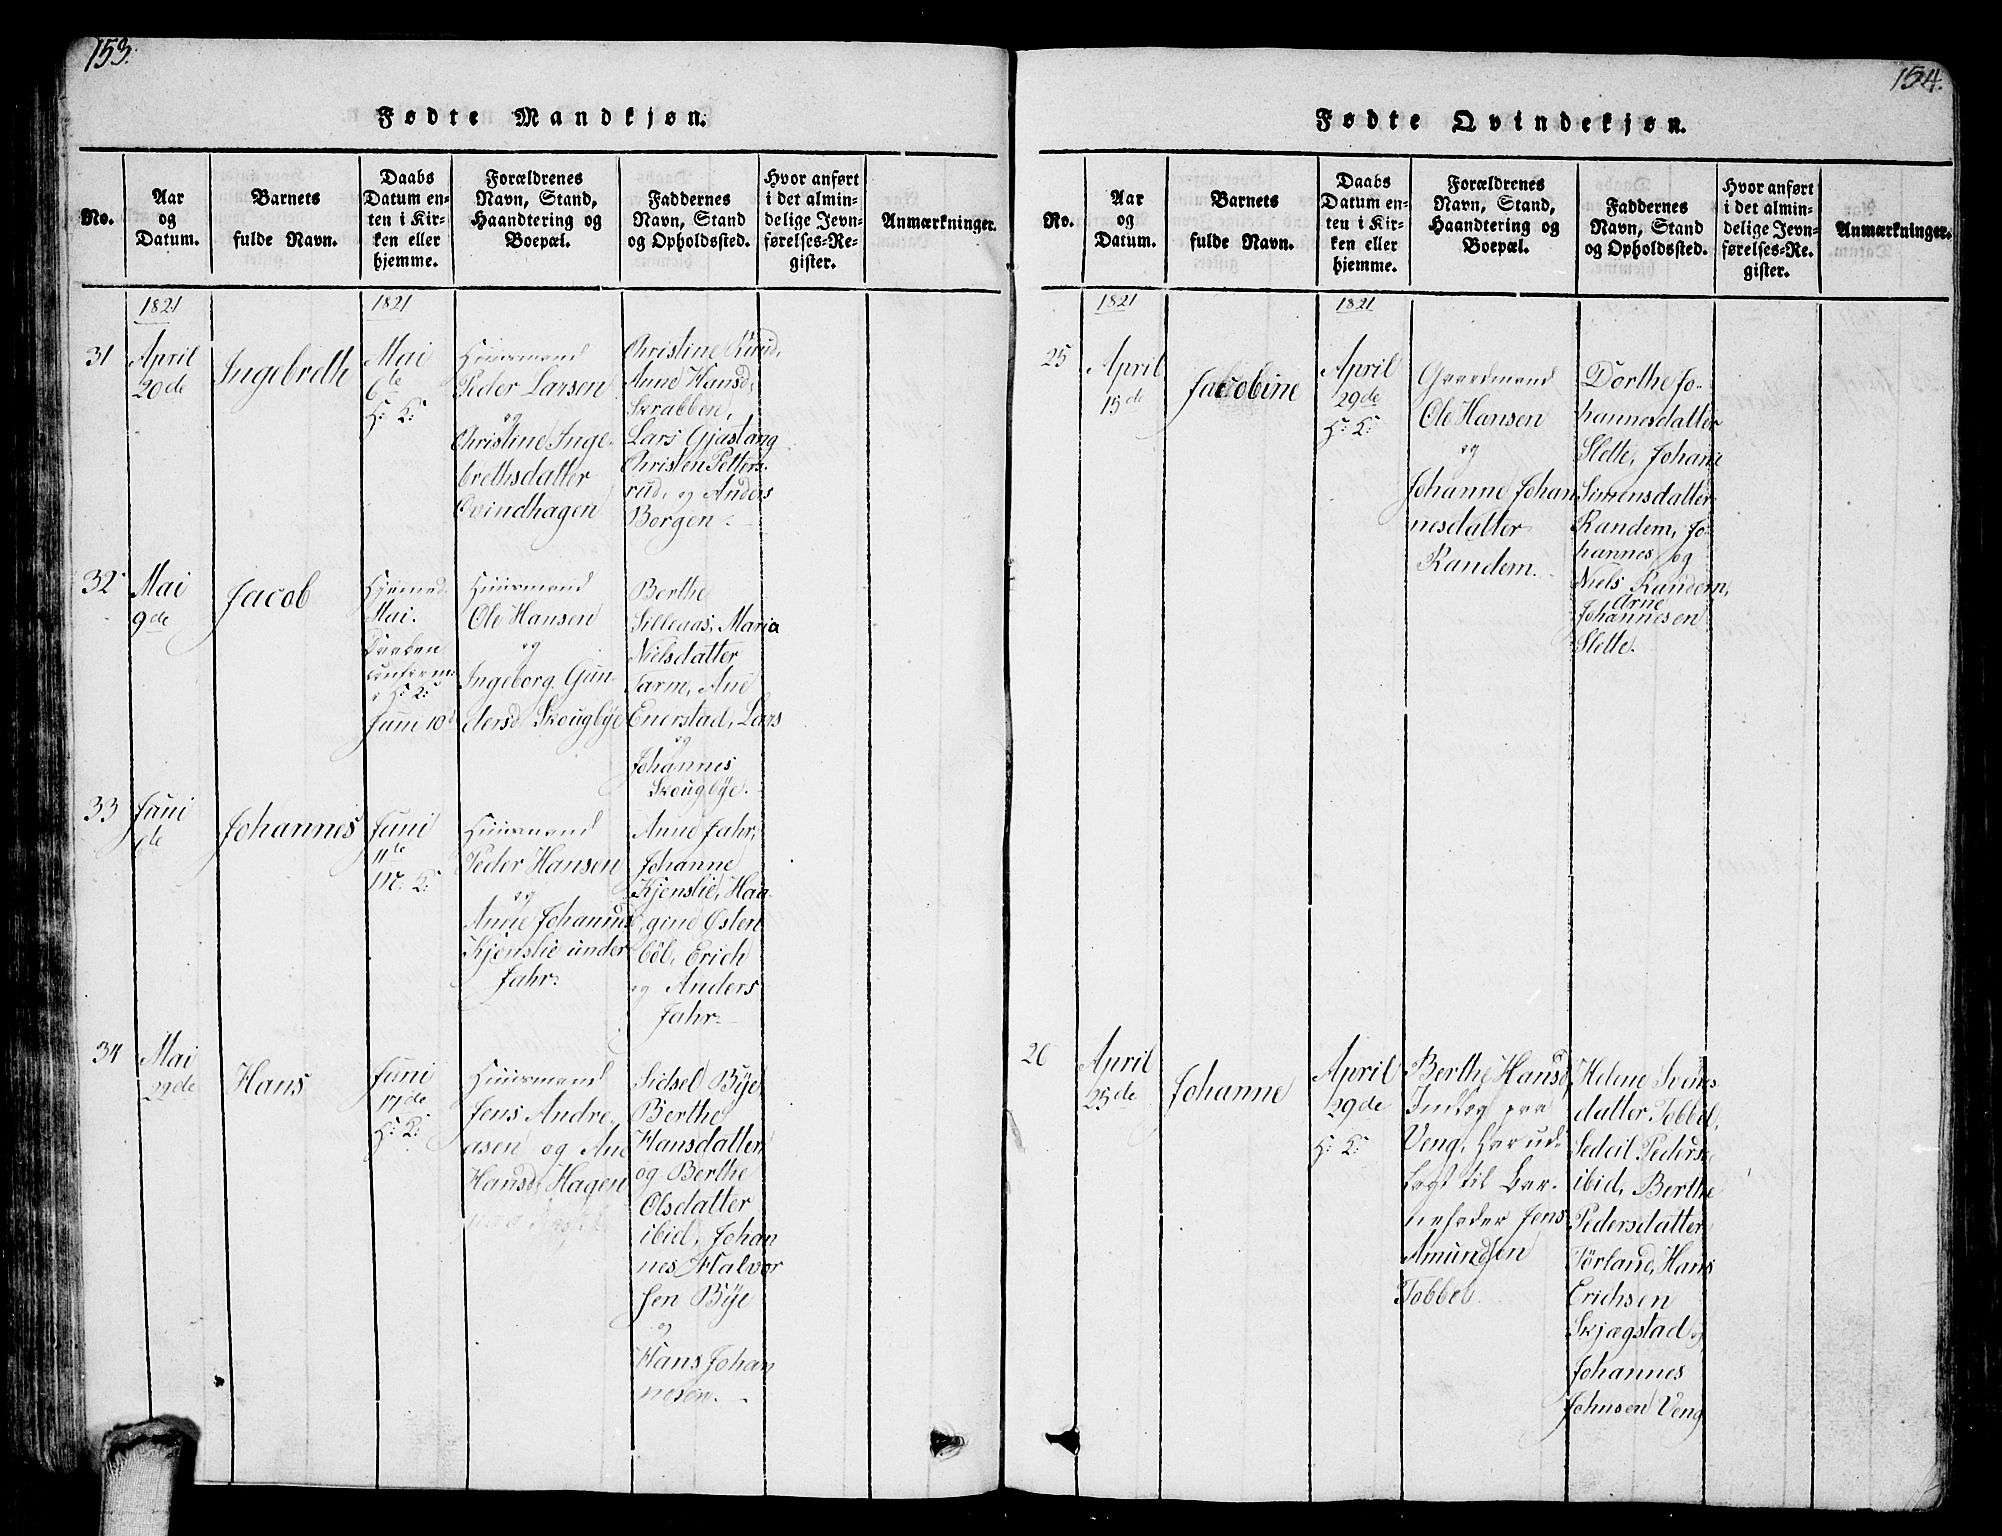 153.
Fødte Mandkjøn.
No.
Aar
og
Datum.
Barnets
fulde Navn.
Daabs
Datum en-
ten i Kir-
ken eller
hjemme.
Forældrenes
Navn, Stand,
Haandtering og
Boepæl.
Faddernes
Navn, Stand
og Opholdssted.
Hvor anført
i det almin-
delige Jevn-
førelses-Re-
gister.
Anmærkninger.
1821
1821
31
April
20de
Ingebreth
Mai
6te
H: K:
Huusmand
Peder Larsen
og
Christine Inge-
brethsdatter
Qvindhagen
Christine Ruud,
Anne Hansd,
Skrabben,
Lars Gjastang
Christen Petters-
rud, og Anders
Borgen.
32
Mai
9de
Jacob
Hjemed.
Mai.
Daaben
H: K:
Juni 10d
Huusmand
Ole Hansen
og
Ingeborg Gun-
dersd Skougbye
Berthe
Sillenas, Maria
Nielsdatter
Farm, Ane
Enerstad, Lars
og
Johannes
Skougbye.
33
Juni
1te
Johannes
Juni
11te
M. K:
Huusmand
Peder Hansen
og
Anne Johannes
Kjenslie under
Jahr.
Anne Jahr,
Johanne
Kjenslie, Haa-
gine Østen
böl, Erich
og Anders
Jahr.
34
Mai
29de
Hans
Juni
17de
H: K:
Huusmand
Jens Andre-
asen og Ane
Hansd, Hagen
Sidsel Bÿe,
Berthe
Hansdatter
og Berthe
Olsdatter
ibid, Johan
nes Halvor
sen Bÿe
og
Hans Johan
nesen.
154.
Fødte Qvindekjøn.
No.
Aar
og
Datum.
Barnets
fulde Navn.
Daabs
Datum en-
ten i Kir-
ken eller
hjemme.
Forældrenes
Navn, Stand,
Haandtering og
Boepæl.
Faddernes
Navn, Stand
og Opholdssted.
Hvor anført
i det almin-
delige Jevn-
førelses-Re-
gister.
Anmærkninger.
1821
1821
25
April
15de
Jacobine
April
29de
H: K:
Gaardmand
Ole Hansen
og
Johanne Johan
nesdatter
Randem.
Dorthe Jo-
hannesdatter
Slette, Johane
Simensdatter
Randem, Jo-
hannes, og
Niels Randem,
Arne
Johannesen
Slette.
26
April
25de
Johanne
April
29de
H: K:
Berthe Hansd,
Indleg paa
Veng, har ud-
lagt til Bar-
nefader Jens
Amundsen
Tobbel.
Helene Svens
datter Tobbel,
Sedcil Peders
ibid, Berthe
Pedersdatter
Tørland, Hans
Erichsen
Skjægstad og
Johannes
Johnsen Veng